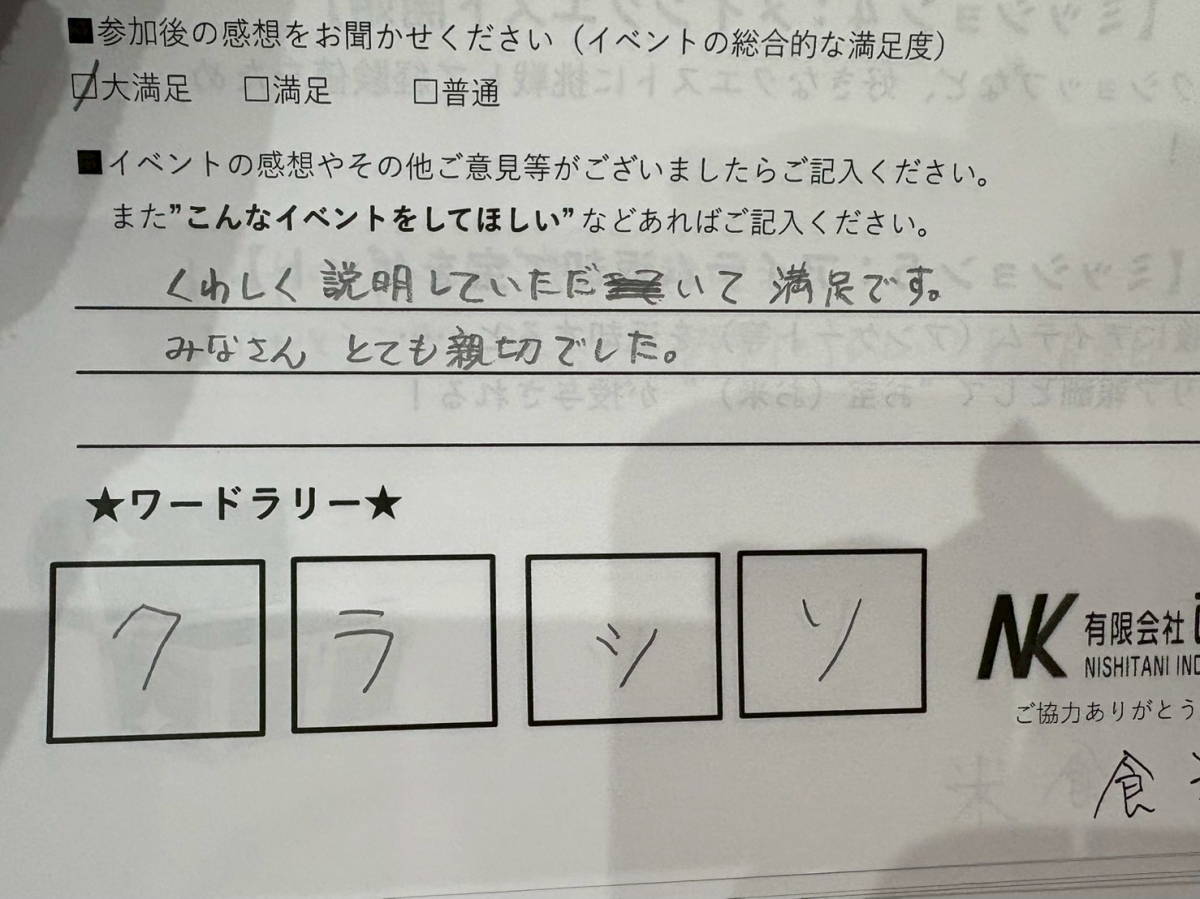 ■参加後の感想をお聞かせください（イベントの総合的な満足度）
☑大満足 □満足 □普通
■イベントの感想やその他ご意見等がございましたらご記入ください。
また”こんなイベントをしてほしい”などあればご記入ください。
くわしく説明していただいて満足です。
みなさん とても親切でした。
★ワードラリー★
ク ラ シ ソ
NK 有限会社
NISHITANI IND
ご協力ありがとう
食